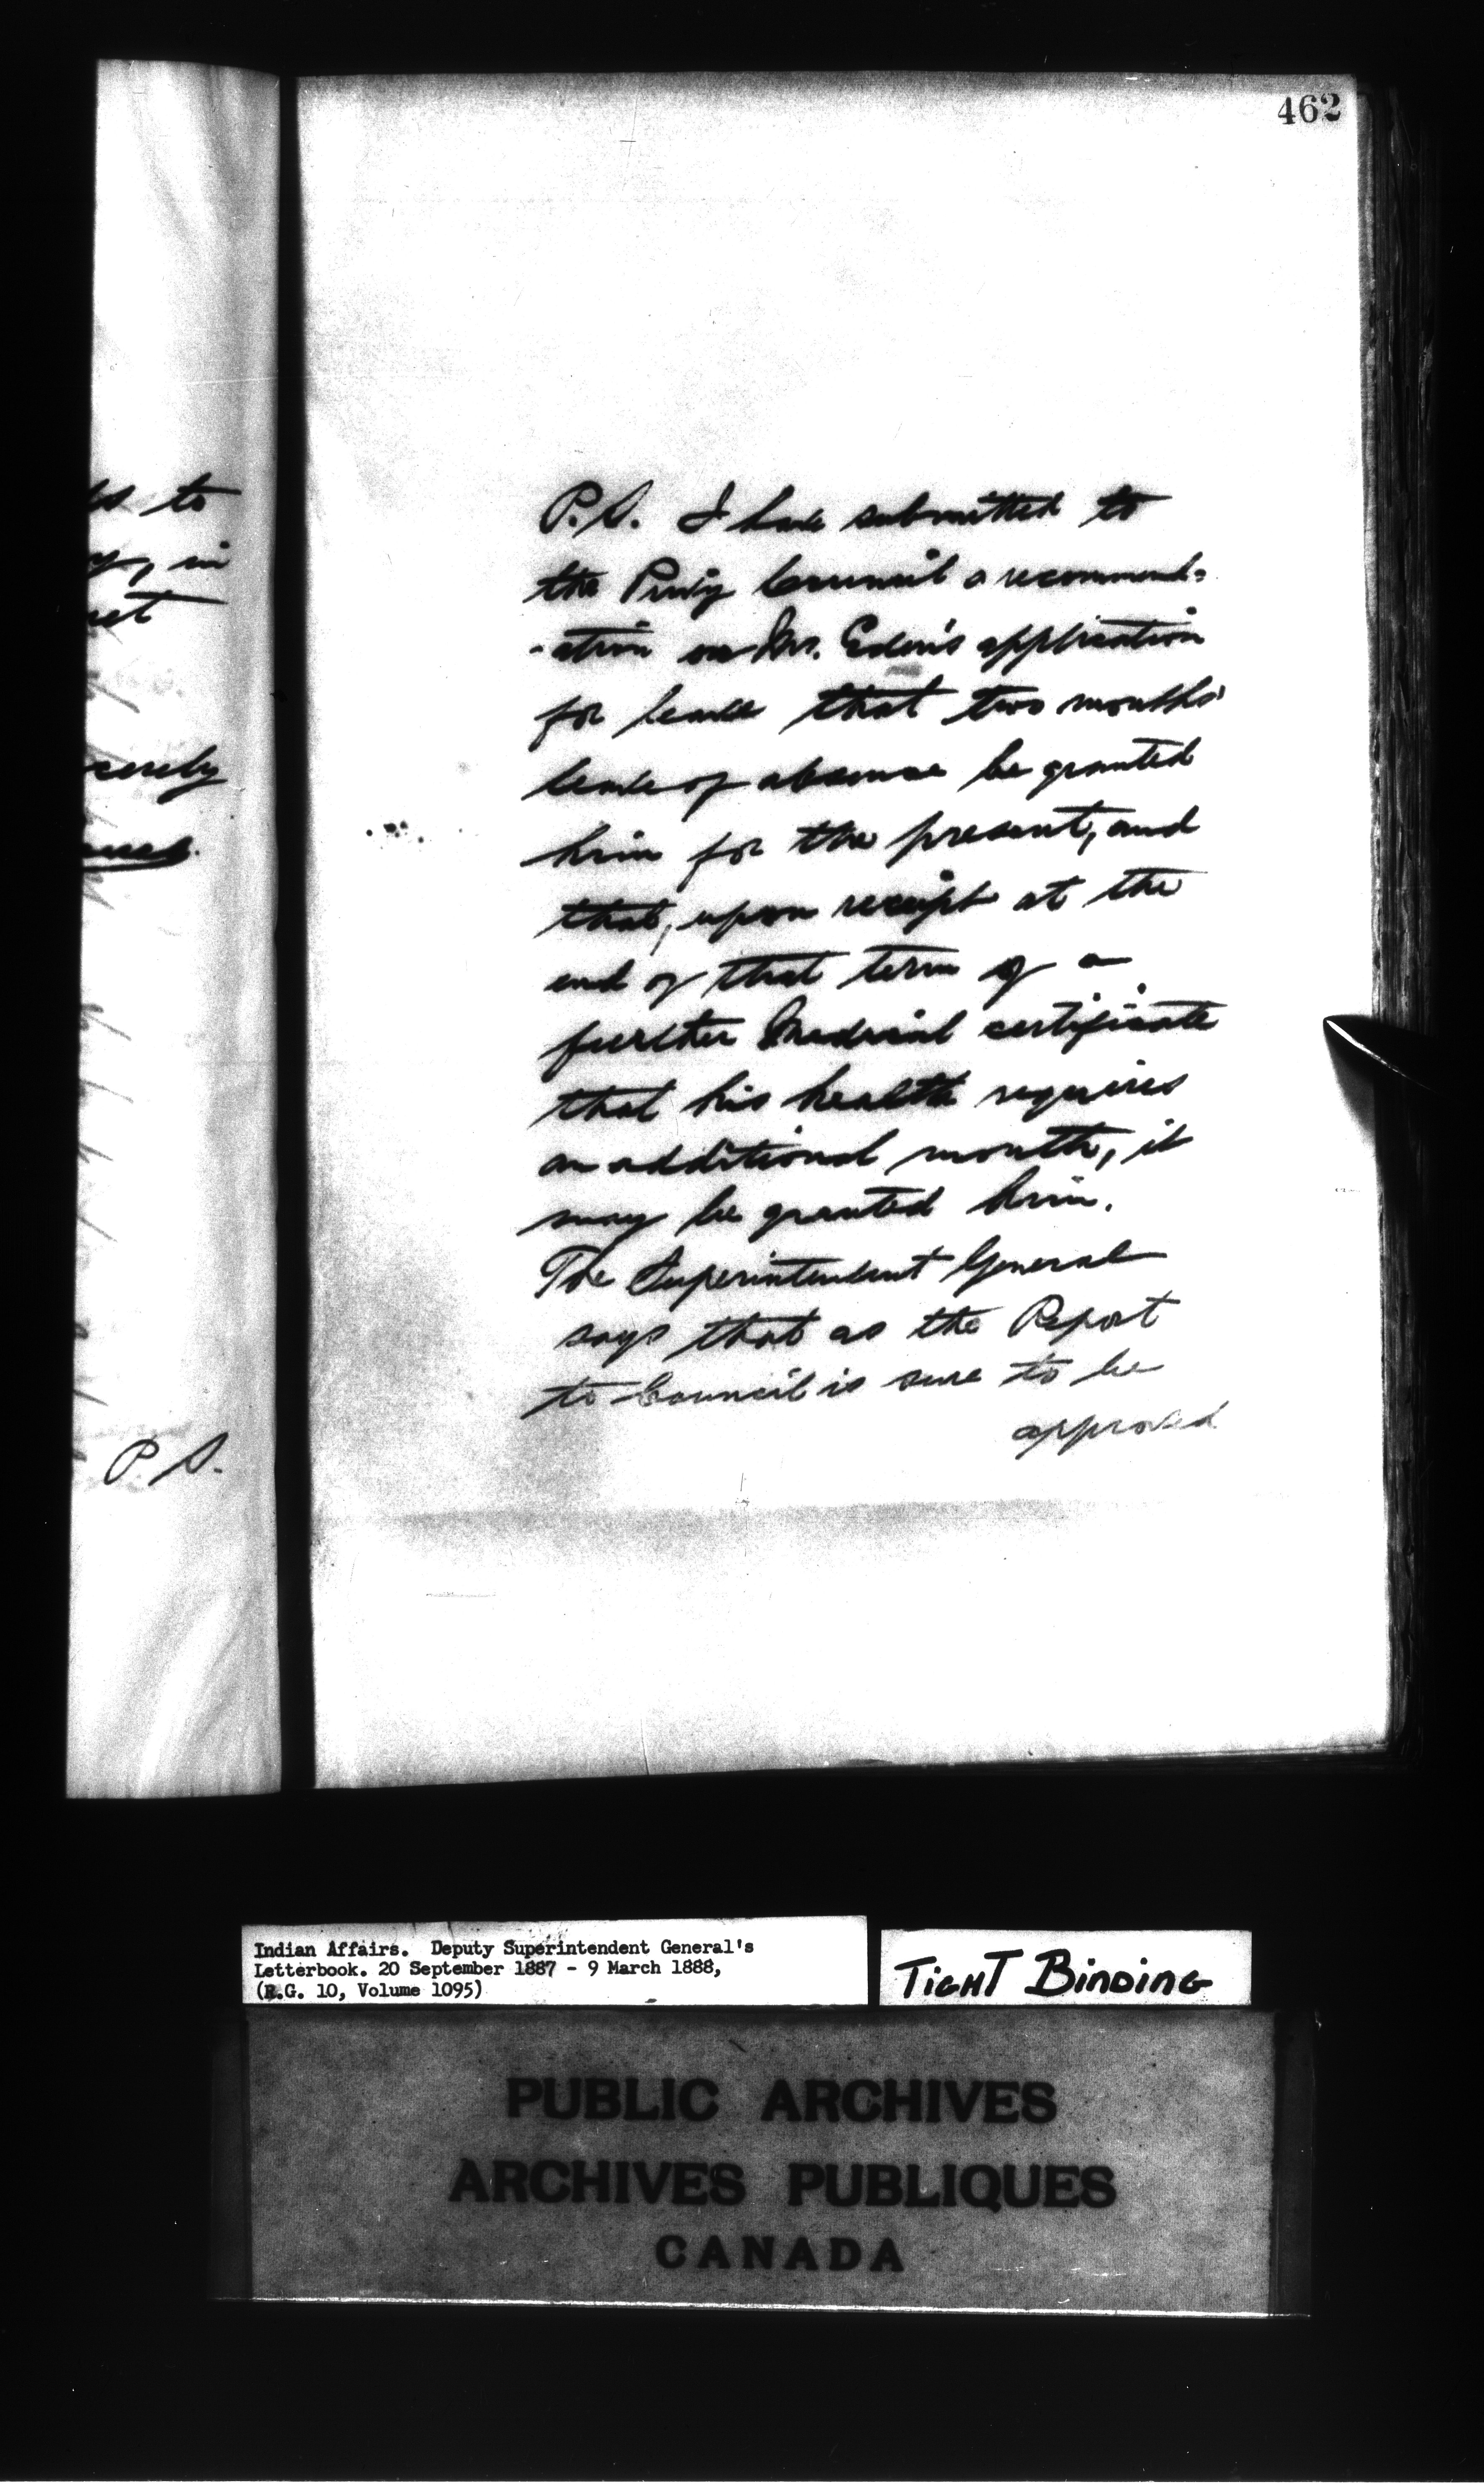 462
to
in
P.S.
P.S. I have submitted to
the Privy Council a recommend=
-ation on Mr. Eden's application
for leave that two months'
leave of absence be granted
him for the present, and
that, upon receipt at the
end of that term of a
further Medical certificate
that his health requires
an additional month, it
may be granted him.
The Superintendent General
says that as the Report
to Council is sure to be
approved
Indian Affairs. Deputy Superintendent General's
Letterbook. 20 September 1887 - 9 March 1888,
(R.G. 10, Volume 1095)
TIGHT BINDING
PUBLIC ARCHIVES
ARCHIVES PUBLIQUES
CANADA